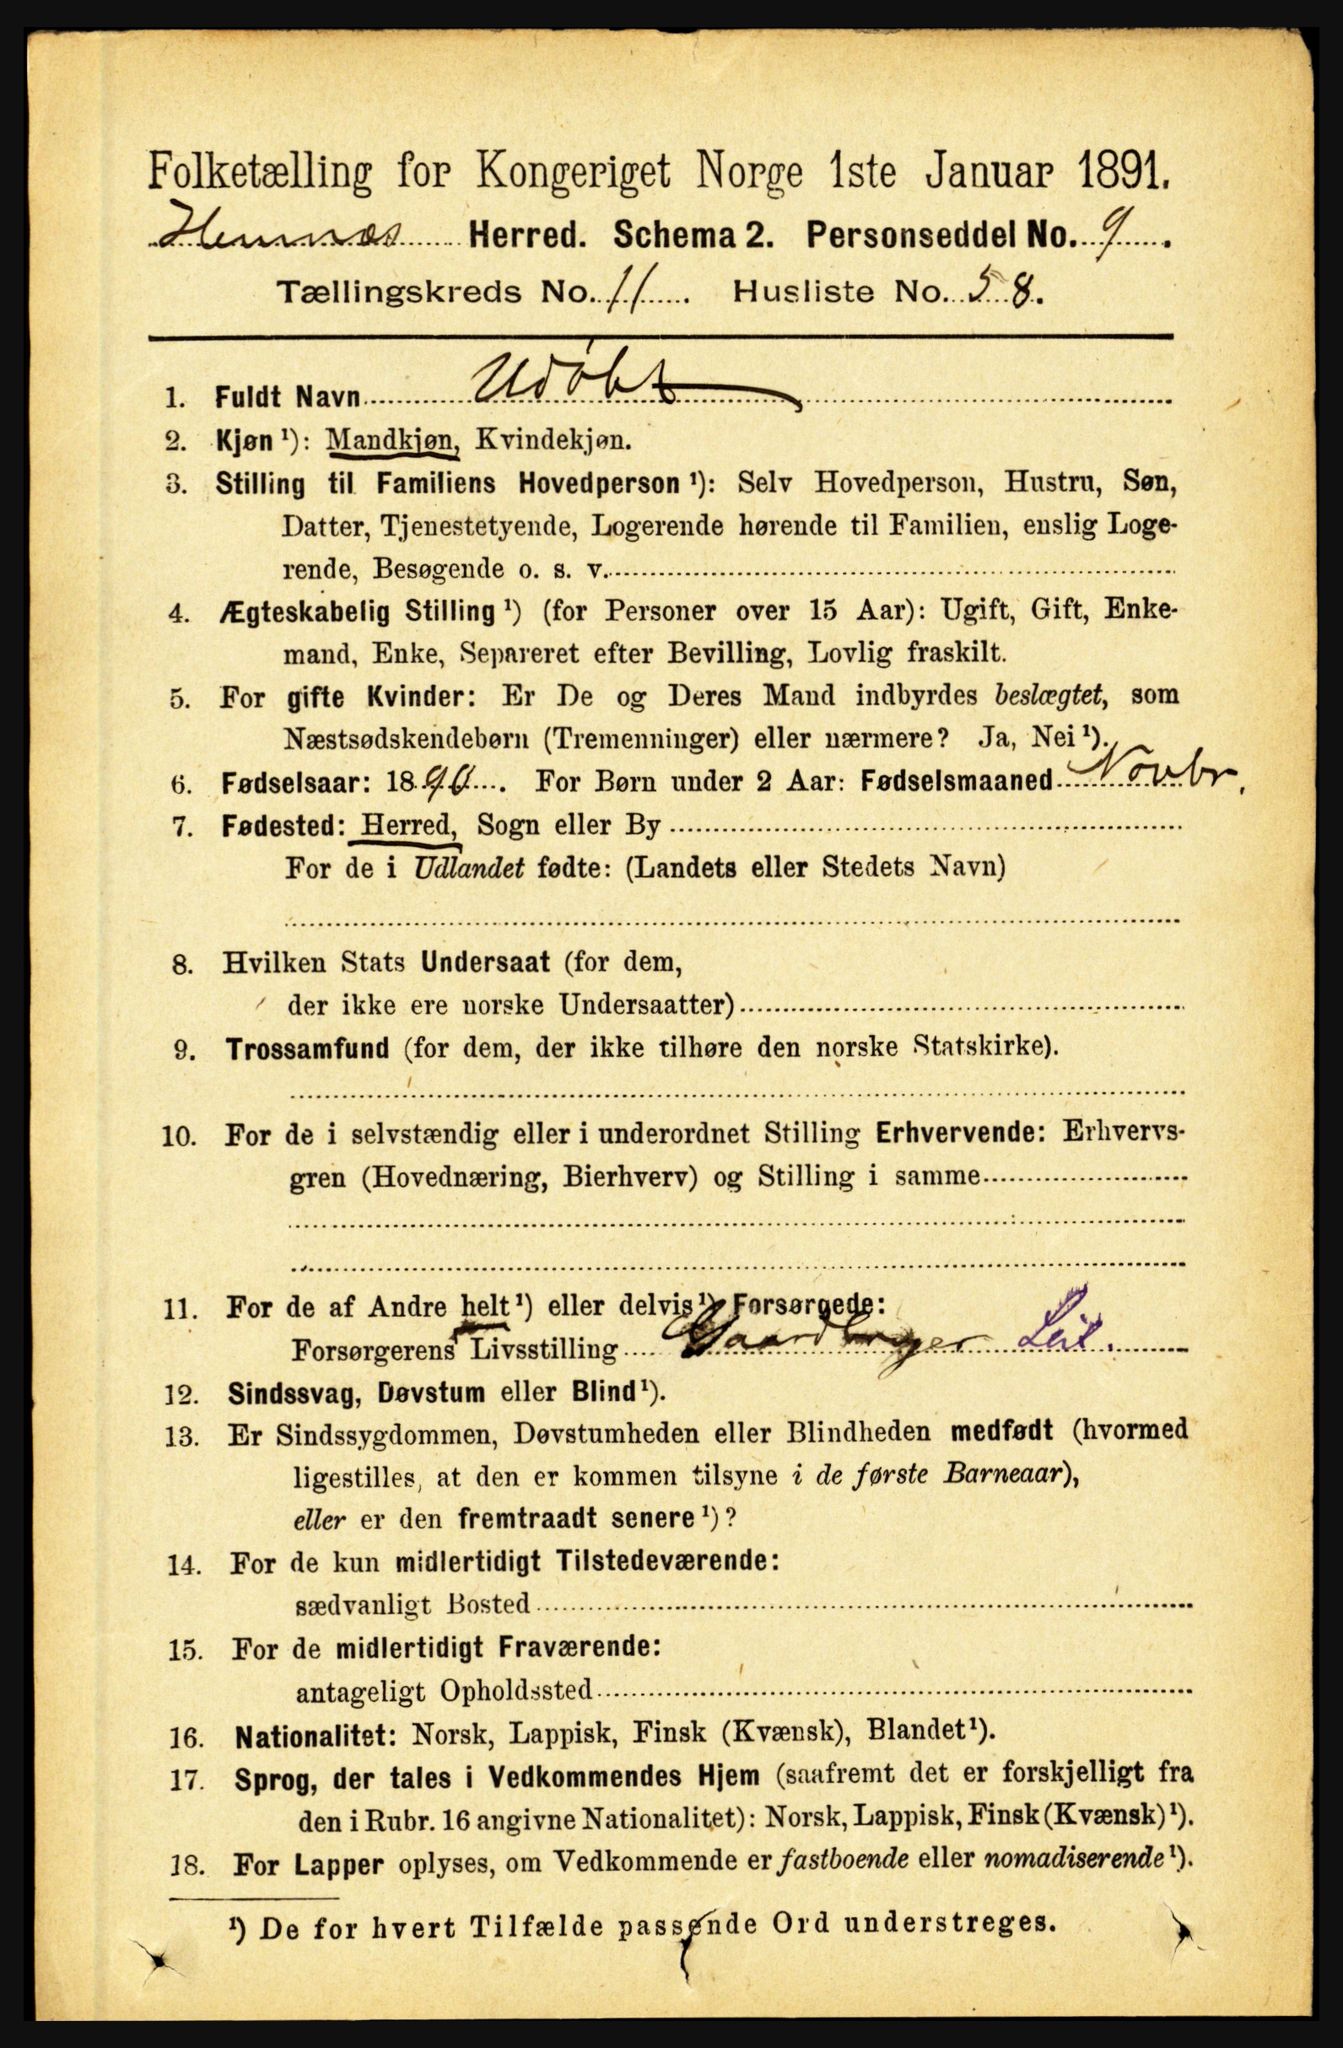 Folketælling for Kongeriget Norge 1ste Januar 1891.
Hemnæs Herred. Schema 2. Personseddel No. 9.
Tællingskreds No. 11. Husliste No. 58.
1. Fuldt Navn Udøbt
2. Kjøn ¹): Mandkjøn, Kvindekjøn.
3. Stilling til Familiens Hovedperson ¹): Selv Hovedperson, Hustru, Søn,
Datter, Tjenestetyende, Logerende hørende til Familien, enslig Loge-
rende, Besøgende o. s. v.
4. Ægteskabelig Stilling ¹) (for Personer over 15 Aar): Ugift, Gift, Enke-
mand, Enke, Separeret efter Bevilling, Lovlig fraskilt.
5. For gifte Kvinder: Er De og Deres Mand indbyrdes beslægtet, som
Næstsødskendebørn (Tremenninger) eller nærmere? Ja, Nei ¹).
6. Fødselsaar: 1890. For Børn under 2 Aar: Fødselsmaaned Novbr.
7. Fødested: Herred, Sogn eller By
For de i Udlandet fødte: (Landets eller Stedets Navn)
8. Hvilken Stats Undersaat (for dem,
der ikke ere norske Undersaatter)
9. Trossamfund (for dem, der ikke tilhøre den norske Statskirke).
10. For de i selvstændig eller i underordnet Stilling Erhvervende: Erhvervs-
gren (Hovednæring, Bierhverv) og Stilling i samme
11. For de af Andre helt ¹) eller delvis ¹) Forsørgede:
Forsørgerens Livsstilling Gaardbruger Leil.
12. Sindssvag, Døvstum eller Blind ¹).
13. Er Sindssygdommen, Døvstumheden eller Blindheden medfødt (hvormed
ligestilles, at den er kommen tilsyne i de første Barneaar),
eller er den fremtraadt senere ¹)?
14. For de kun midlertidigt Tilstedeværende:
sædvanligt Bosted
15. For de midlertidigt Fraværende:
antageligt Opholdssted
16. Nationalitet: Norsk, Lappisk, Finsk (Kvænsk), Blandet ¹).
17. Sprog, der tales i Vedkommendes Hjem (saafremt det er forskjelligt fra
den i Rubr. 16 angivne Nationalitet): Norsk, Lappisk, Finsk (Kvænsk) ¹).
18. For Lapper oplyses, om Vedkommende er fastboende eller nomadiserende ¹).
¹) De for hvert Tilfælde passende Ord understreges.